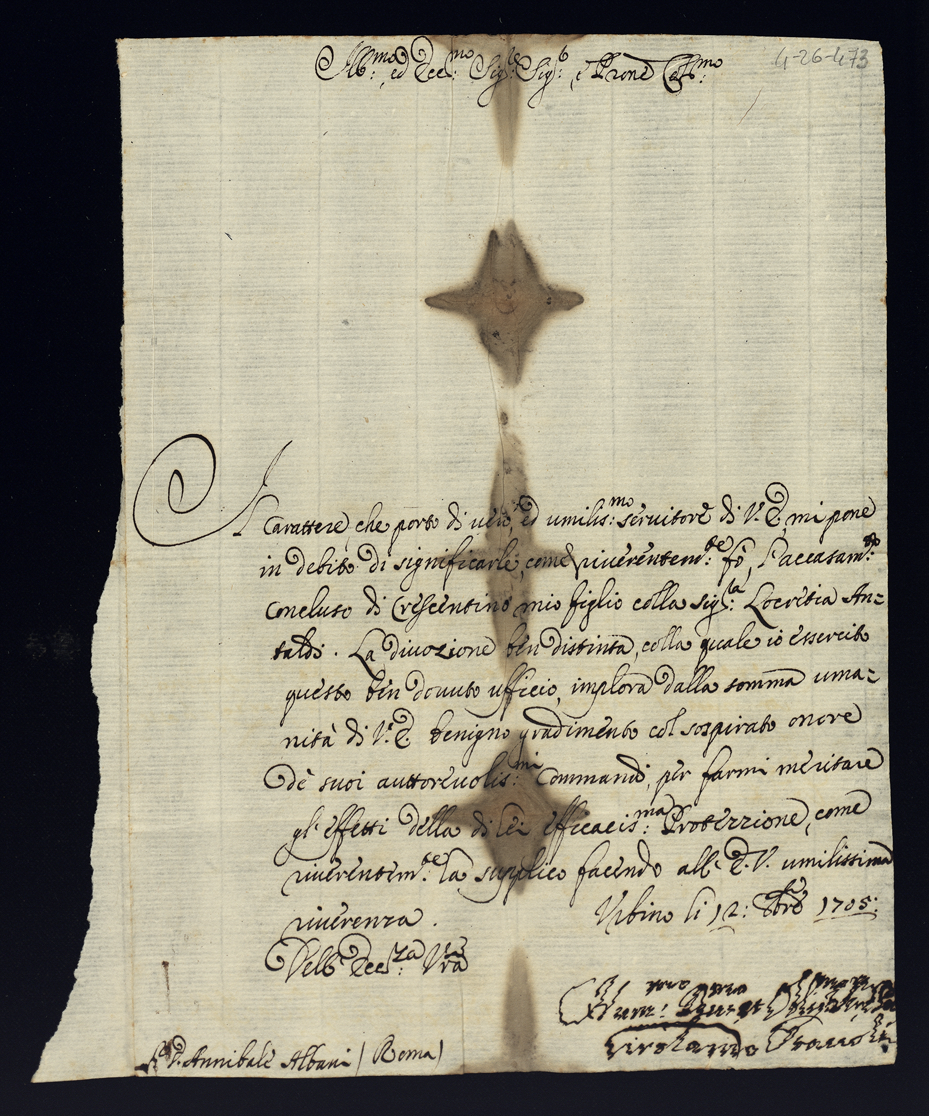 Ill.mo ed Ecc.mo Sig.re Sig.r e Prone Col.mo
4-26-473
Il Carattere, che porto di vero, ed umilis.mo servitore di V. E., mi pone
in debito di significarle, come riverentem.te fò, l'accasam.to
concluso di Crescentino mio figlio colla sig.ra Locretia An=
taldi. La divozione ben distinta, colla quale io essercito
questo ben douuto ufficio, implora dalla somma uma=
nità di V. E. benigno gradimento col sospirato onore
de suoi auttoreuolis.mi Commandi, per farmi meritare
gl'effetti della di lei efficacis.ma Protezzione, come
riuerentem.te la supplico facendo all' E. V. umilissima
riuerenza.
Urbino li 12: 8bre 1705:
Dell' Ecc.za Vra
Girolamo
D. Annibale Albani (Roma)